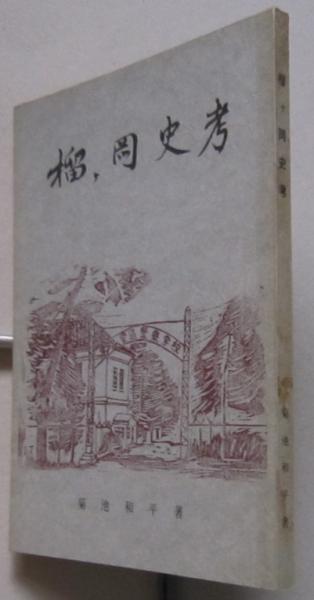 榴ヶ岡史考
菊池和平著
榴ヶ岡史考
菊池和平著